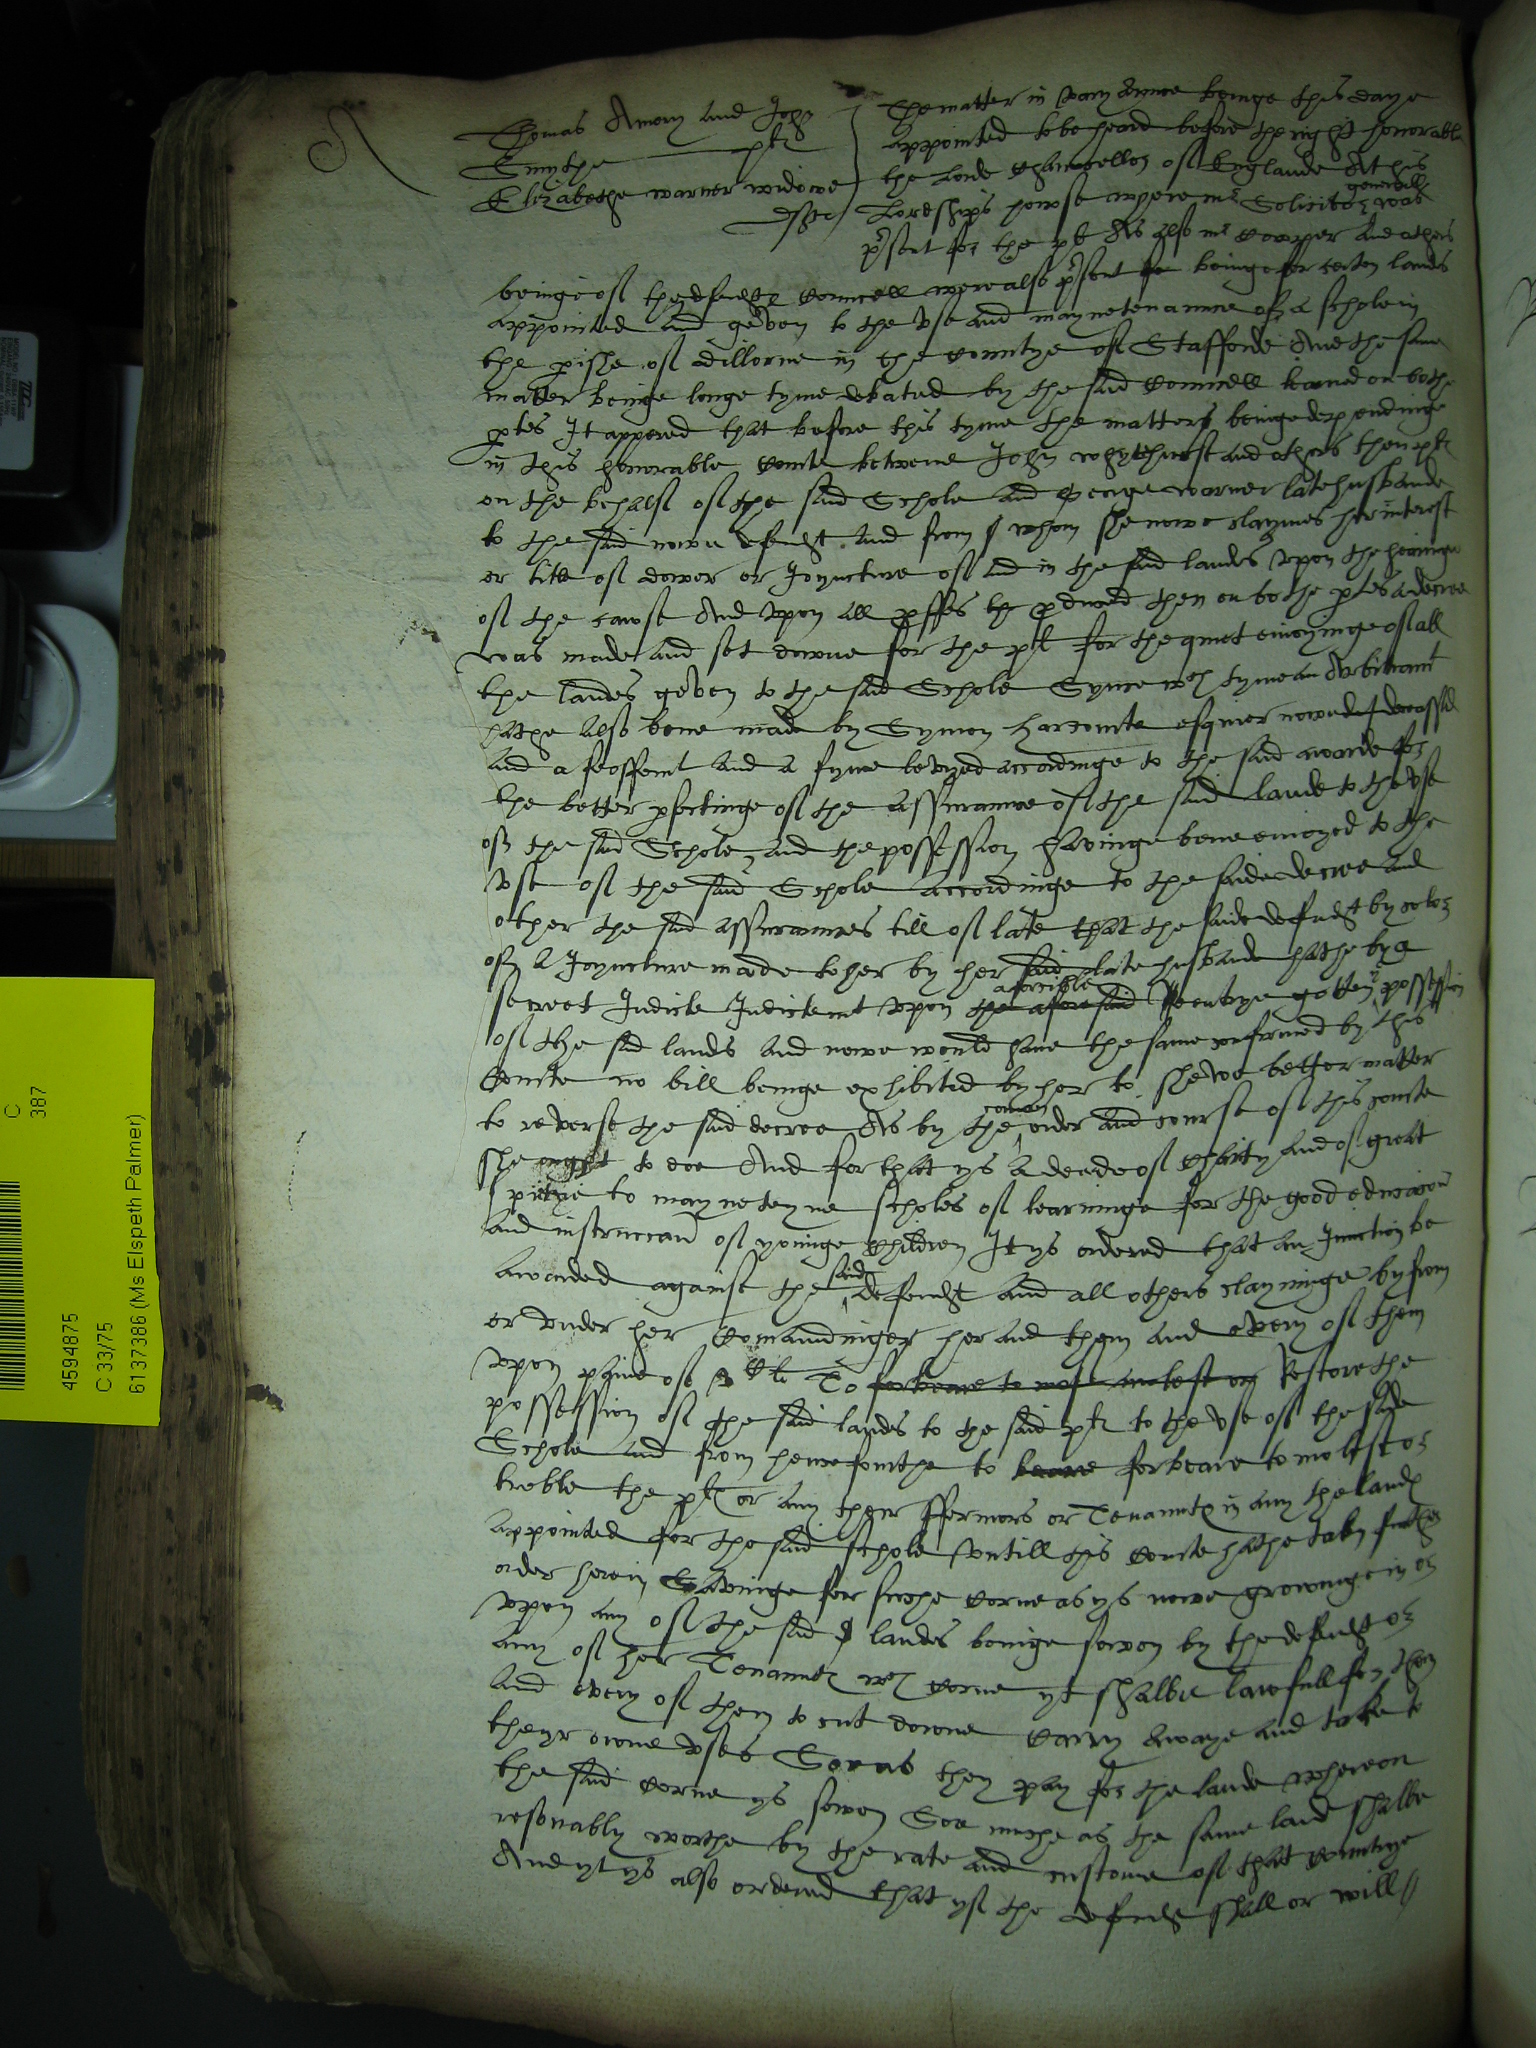 Thomas Amery and John
Smythe pltes
Elizabethe warner widowe
deft
The matter in varyaunce beinge this daye
appointed to be heard before the right honorable
the Lorde Chauncellor of Englande At his
Lordships howse where mr Solicitor generall was
present for the pltes As also mr Cowper and others
beinge of the defendtes Councell were also present for beinge for certen lands
appointed and geven to the use and mayntenaunce of a schole in
the pishe of dillorne in the Countye of Stafforde And the same
matter beinge longe tyme debated by the said Councell learned on bothe
ptes It appered that before this tyme the matters beinge dependinge
in this honorable Courte betwene John whytehurst and others then pltes
on the behalf of the said Schole and George warner late husbande
to the said nowe defendt and from whom she nowe claymes her interest
or title of dower or Joyncture of and in the said landes upon the hearinge
of the cawse And upon all proffes produced then on bothe ptes a decree
was made and set downe for the pltes for the quiet enioyinge of all
the landes geven to the said Schole Synce wch tyme an Arbitrament
hathe also bene made by Symon harcourte esquier nowe deceassed
and a feoffemt and a fyne levyed accordinge to the said awarde for
the better pfectinge of the assuraunce of the said lande to the use
of the said Schole, and the possession havinge bene enioyed to the
use of the said Schole accordinge to the saide decree and
other the said assuraunces till of late that the saide defendt by color
of a Joyncture made to her by her said late husbande hathe by a
secreet Indicte Indictemt upon the aforesaid a forcible entrye gotten possession
of the sd lands and nowe would have the same confirmed by this
Courte no bill beinge exhibited by her to shewe better matter
to reverse the said decree As by the comon order and course of this courte
she ought to doe And for that ys a deede of charity and of great
pietie to maynteyne scholes of learninge for the good educacon
and instruccon of yonge children It ys ordered that an Iniunction be
awarded against the said defendt and all others clayminge by from
or under her Comaundinge her and them and every of them
upon paine of To forbeare to molest Restore the
possession of the said lands to the said pltes to the use of the saide
Schole and from hencefourthe to forbeare to molest or
troble the pltes or any their ffermors or Tenauntes in any the landes
appointed for the said schole Untill this Courte hathe taken further
order herein Savinge for suche Corne as ys nowe growinge in or
upon any of the said landes beinge sowen by the defendt or
any of her Tenauntes wch Corne yt shalbe lawfull for them
and every of them to cut downe Carry awaye and take to
theyr owne uses Soe as they pay for the lande whereon
the said Corne ys sowen Soe muche as the same land shalbe
resonably worthe by the rate and custome of that Countrye
And yt ys also ordered that yf the defendt shall or will
C
387
4594875
C 33/75
6137386 (Ms Elspeth Palmer)